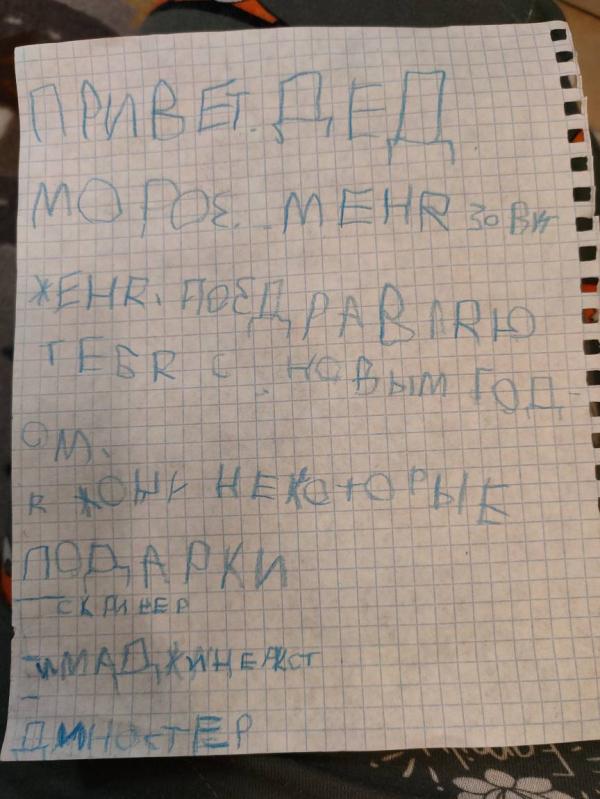 ПРИВЕТ. ДЕД
МОРОЗ. МЕНЯ
ЖЕНЯ. ПОЗДРАВЛЯЮ
ТЕБЯ С НОВЫМ ГОД-
ОМ.
Я ХОЧУ НЕКОТОРЫЕ
ПОДАРКИ
— СКРИНЕР
- ИМАДЖИНЕКСТ
-
ДИНОСТЕР
Family